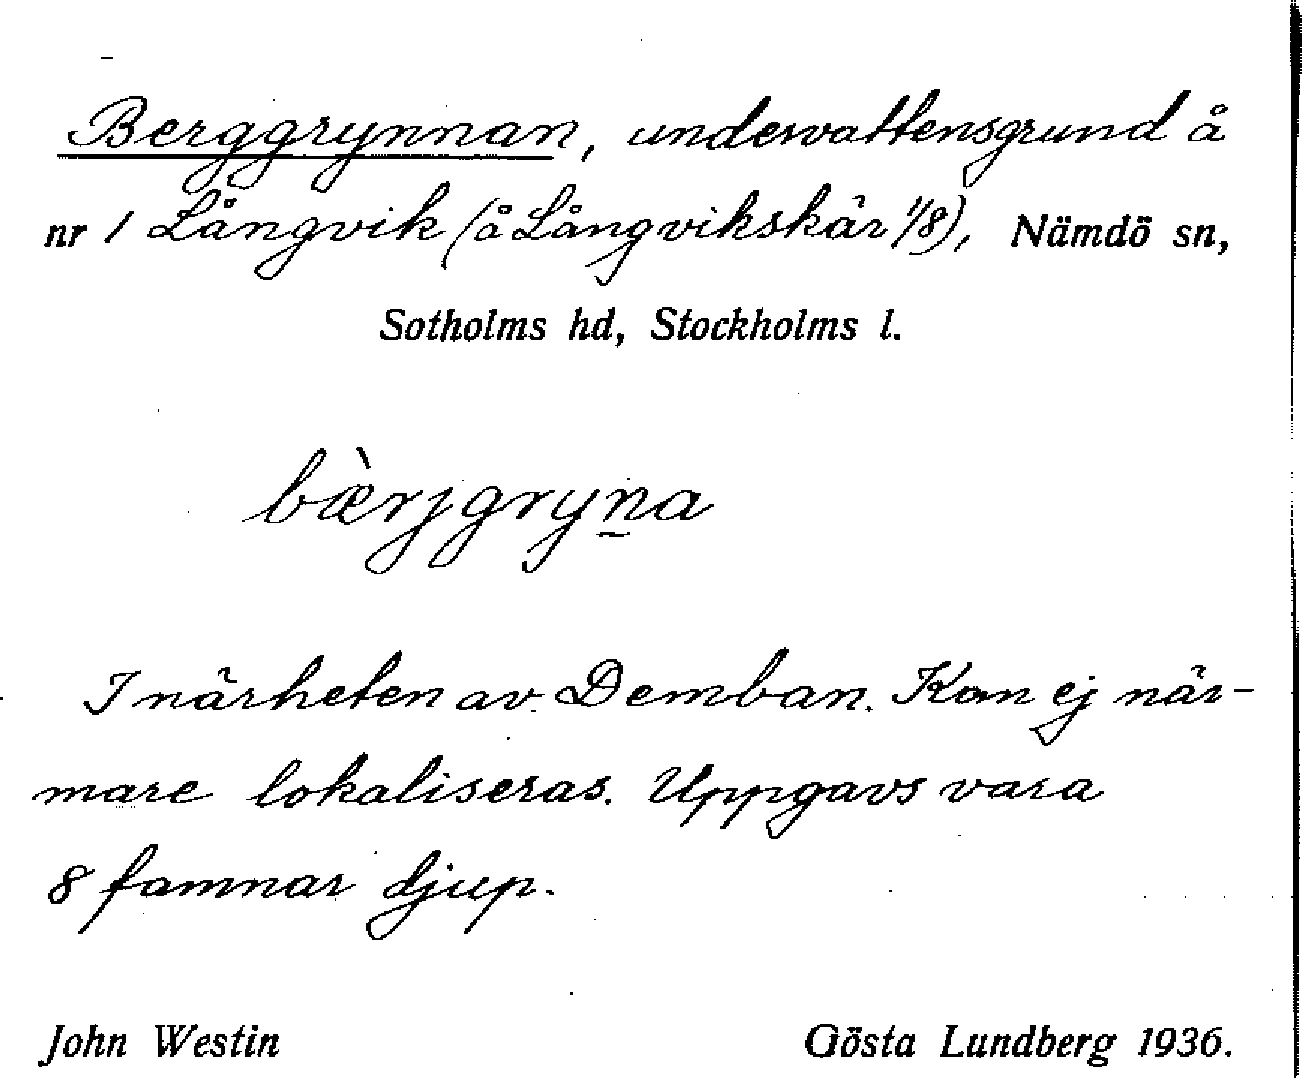 Berggrynnan, undervattensgrund å
nr 1 Långvik (å Långvikskär 1/8), Nämdö sn,
Sotholms hd, Stockholms l.
bæ̀rjgryṉa
I närheten av Demban. Kan ej när-
mare lokaliseras. Uppgavs vara
8 famnar djup.
John Westin Gösta Lundberg 1936.